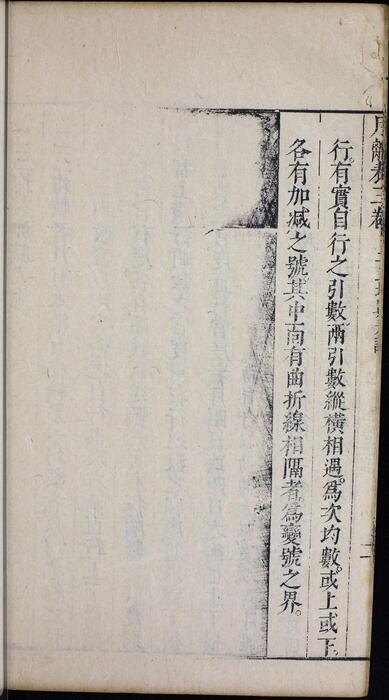 月離表三卷
行有實自行之引數兩引數縱橫相遇。爲次均數。或上或下。
各有加减之號其中間有曲折線相隔者爲變號之界。